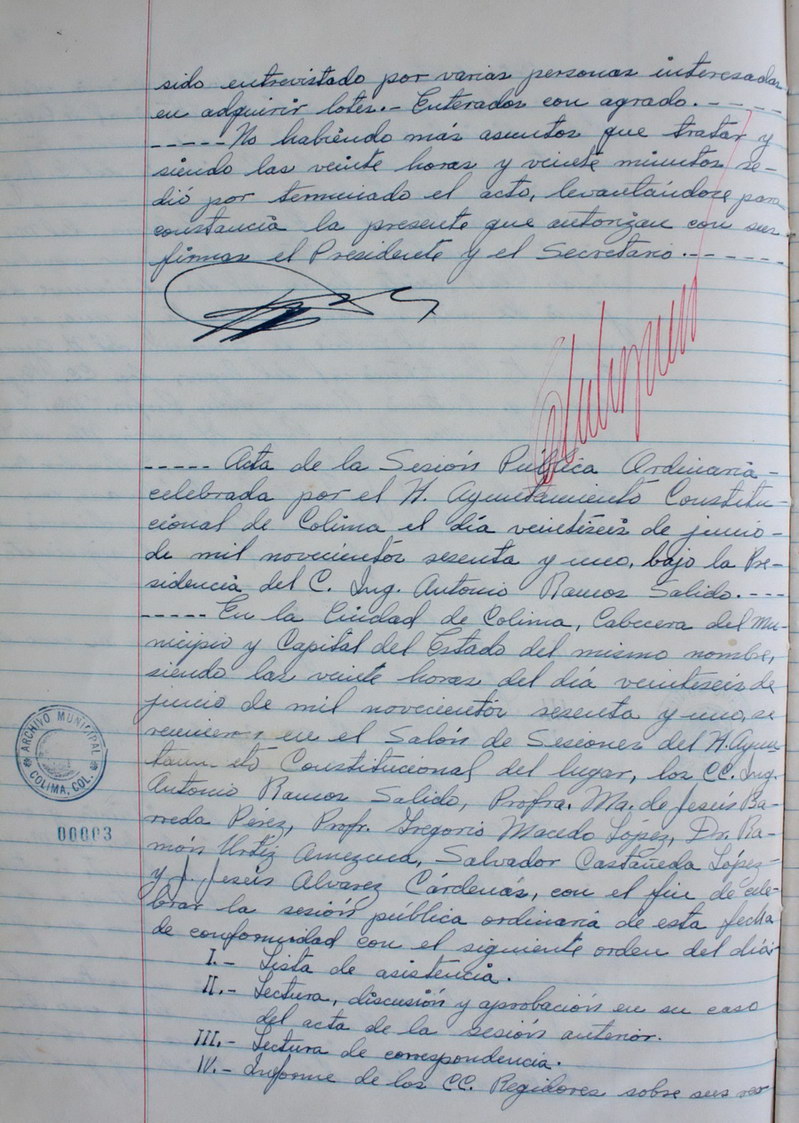 sido entrevistado por varias personas interesadas
en adquirir lotes.- Enterados con agrado.-----
-----No habiendo más asuntos que tratar y
siendo las veinte horas y veinte minutos se-
dió por terminado el acto, levantándose para
constancia la presente que autorizan con sus
firmas el Presidente y el Secretario.------
-----Acta de la Sesión Pública Ordinaria-
celebrada por el H. Ayuntamiento Constitu-
cional de Colima el día veintiseis de junio-
de mil novecientos sesenta y uno, bajo la Pre-
sidencia del C. Ing. Antonio Ramos Salido.----
-----En la Ciudad de Colima, Cabecera del Mu-
nicipio y Capital del Estado del mismo nombre,
siendo las veinte horas del día veintiseis de
junio de mil novecientos sesenta y uno, se
reunieron en el Salón de Sesiones del H. Ayun-
tamiento Constitucional del lugar, los CC. Ing.
Antonio Ramos Salido, Profra. Ma. de Jesús Ba-
rreda Pérez, Profr. Gregorio Macedo López, Dr. Ra-
món Urtíz Amezcua, Salvador Castañeda López-
y J. Jesús Alvarez Cárdenas, con el fin de cele-
brar la sesión pública ordinaria de esta fecha
de conformidad con el siguiente orden del día:
I.- Lista de asistencia.
II.- Lectura, discusión y aprobación en su caso
del acta de la sesión anterior.
III.- Lectura de correspondencia.
IV.- Informe de los CC. Regidores sobre sus
ARCHIVO MUNICIPAL
COLIMA, COL.
00003